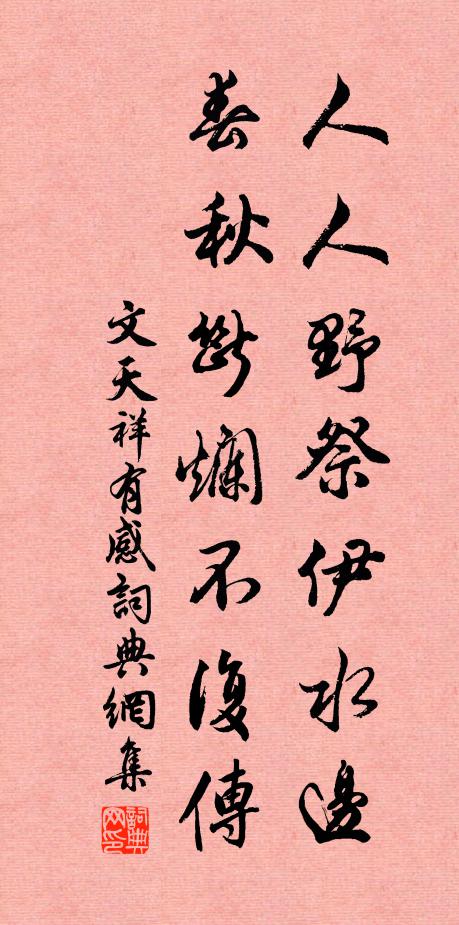 人人野祭伊水邊
春秋斷爛不復傳
文天祥有感詞典網集
詞典
网印